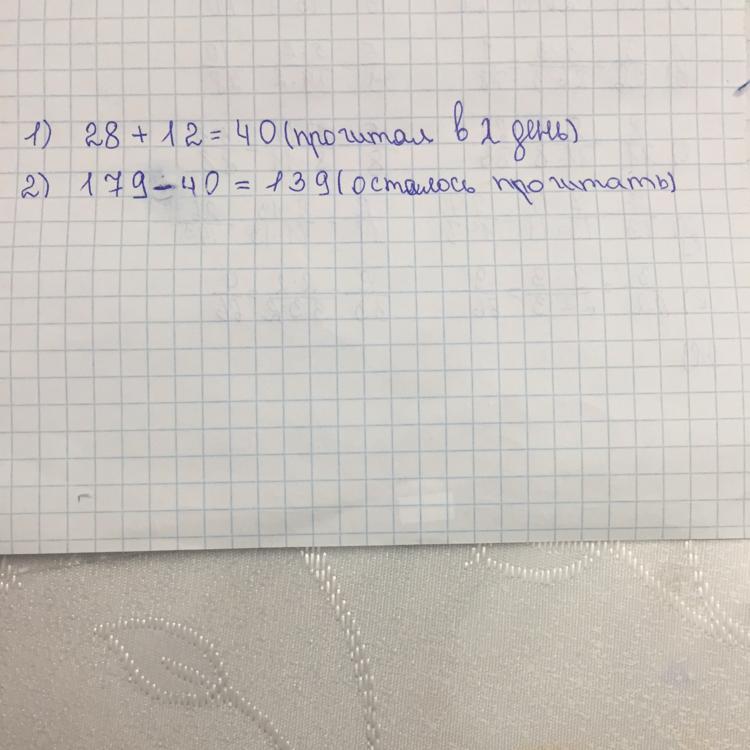 1) 28 + 12 = 40 (прочитал в 2 день)
2) 179 - 40 = 139 (осталось прочитать)